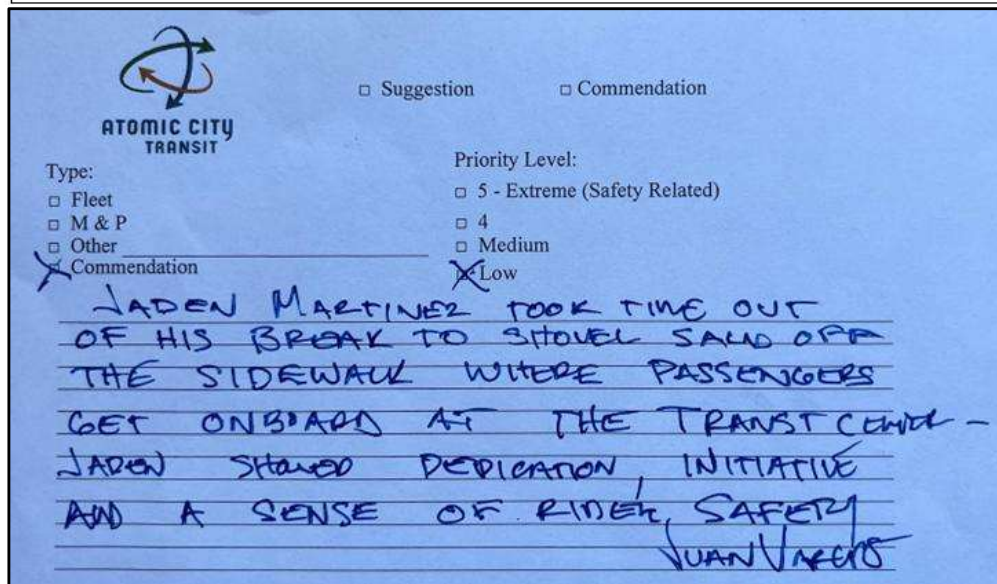 ATOMIC CITY
TRANSIT
□ Suggestion □ Commendation
Type:
□ Fleet
□ M & P
□ Other
Commendation
Priority Level:
□ 5 - Extreme (Safety Related)
□ 4
□ Medium
Low
JADEN MARTINEZ TOOK TIME OUT
OF HIS BREAK TO SHOVEL SAND OFF
THE SIDEWALK WHERE PASSENGERS
GET ONBOARD AT THE TRANST CENTER -
JADEN SHOWED DEDICATION, INITIATIVE
AND A SENSE OF RIDER SAFETY
JUAN